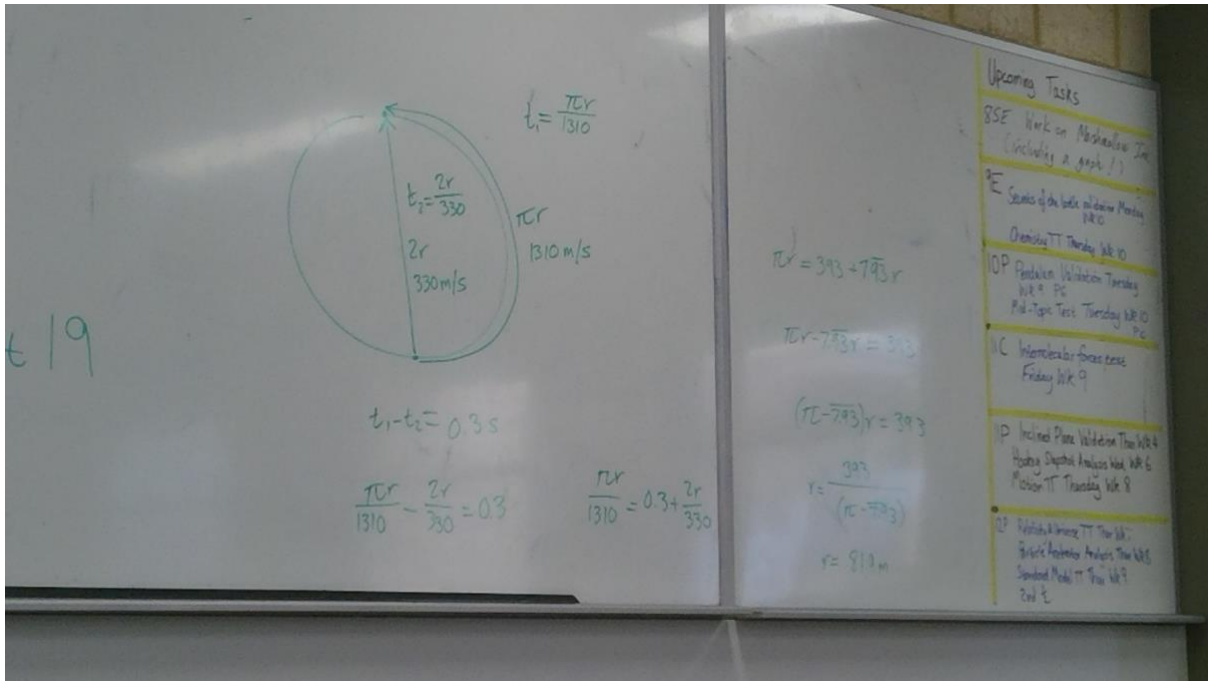 t 19
t₁ = πr/1310
t₂ = 2r/330
2r
330 m/s
πr
1310 m/s
t₁-t₂ = 0.3 s
πr/1310 - 2r/330 = 0.3
πr/1310 = 0.3 + 2r/330
πr = 393 + 7.93r
πr - 7.93r = 393
(π - 7.93)r = 393
r = 393/(π - 7.93)
r = 810m
Upcoming Tasks
8SE Work on Marshmallow
(including a graph!)
9E Secrets of the validation Monday
Wk 10
Chemistry TT Thursday Wk 10
10P Pendulum Validation Tuesday
Wk 9 P6
Mid-Topic Test Tuesday Wk 10
P6
11C Intermolecular forces
Friday Wk 9
11P Inclined Plane Validation Thur Wk 4
Analysis Wed Wk 6
Motion TT Thursday Wk 8
TT Thur Wk
Particle Accelerator Analysis Thur Wk 8
Standard Model TT Thur Wk 9